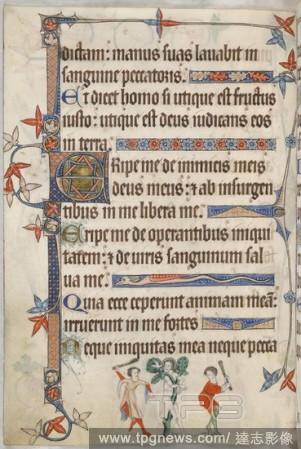 dictam: manus suas lauabit in
sanguine peccatoris.
Et dicet homo si utique est fructus
iusto: utique est deus iudicans eos
in terra.
Eripe me de inimicis meis
deus meus: ⁊ ab insurgen
tibus in me libera me.
Eripe me de operantibus iniqui
tatem: ⁊ de uiris sanguinum sal
ua me.
Quia ecce ceperunt animam meā:
irruerunt in me fortes
Neque iniquitas mea neque pecca
TPG
www.tpgnews.com/ 達志影像